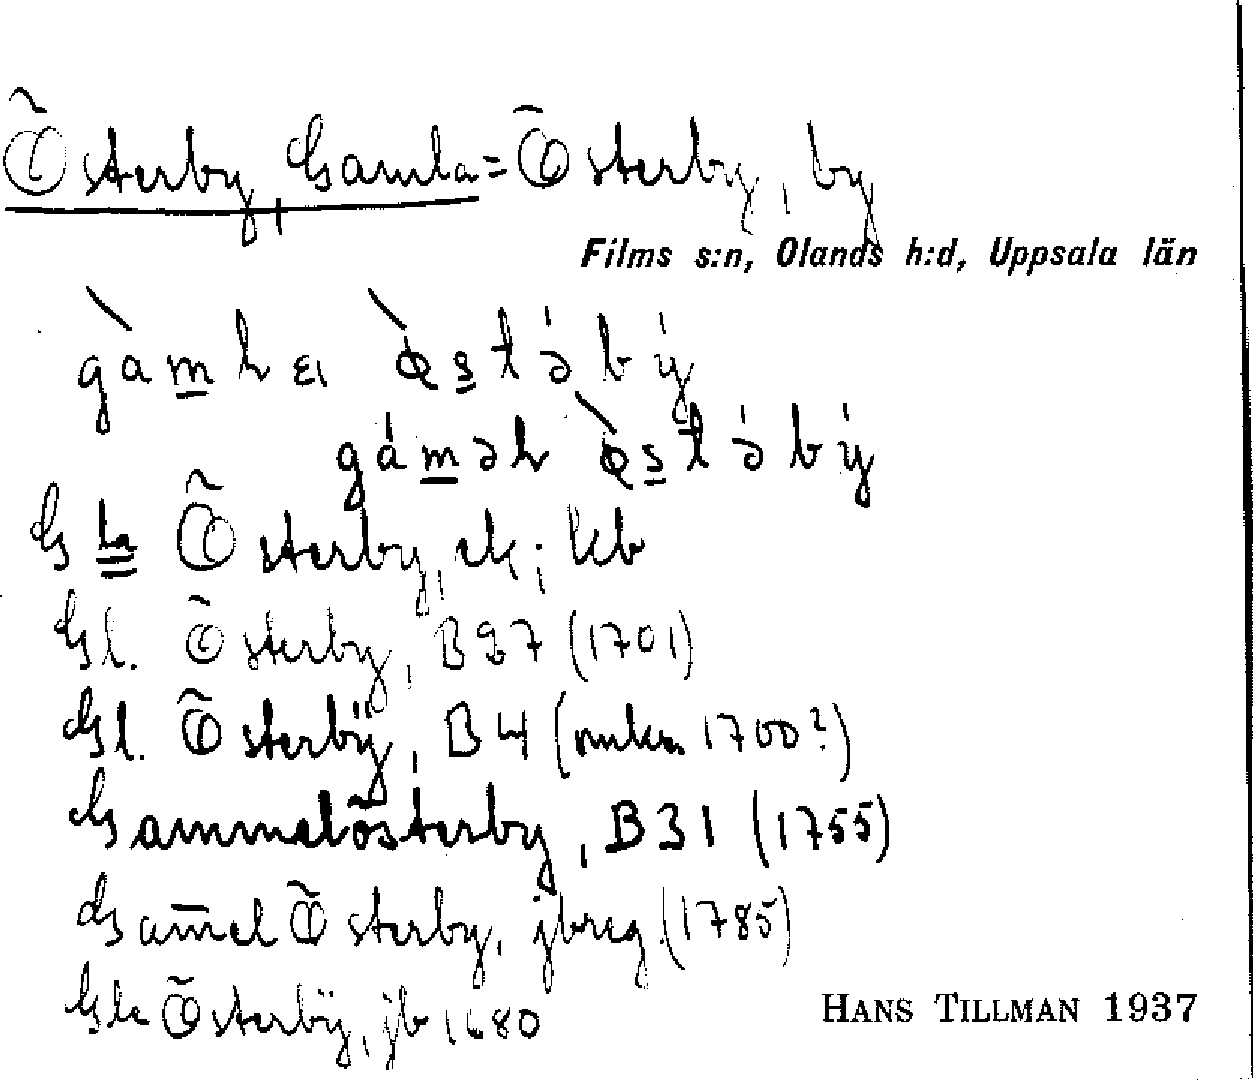 Österby, Gamla = Österby, by
Films s:n, Olands h:d, Uppsala län
Gla Österby, ek; kb
Gl. Österby, B27 (1701)
Gl. Österbÿ, B4 (1700?)
Gammelösterby, B31 (1755)
Gam̄el Österby, jbreg (1785)
Gla Österbÿ, jb 1680
HANS TILLMAN 1937